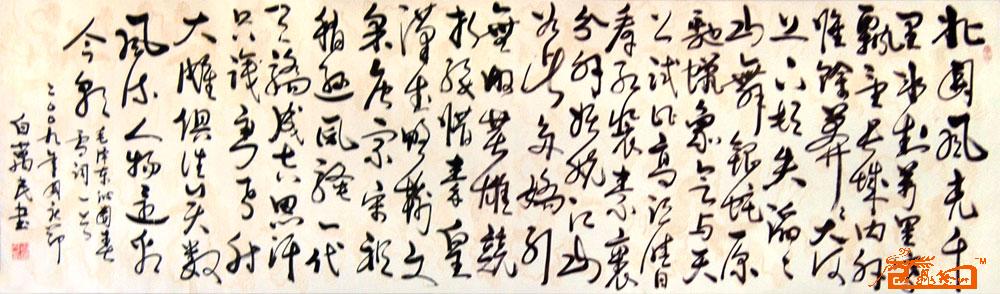 北国风光千
里冰封万里雪
飘望长城内外
惟馀莽莽大河
上下顿失滔滔
山舞银蛇原
驰蜡象欲与天
公试比高须晴日
看红装素裹
分外妖娆江山
如此多娇引
無数英雄竞
折腰惜秦皇
汉武略输文
采唐宗宋祖
稍逊风骚一代
天骄成吉思汗
只识弯弓射
大雕俱往矣数
风流人物还看
今朝
毛泽东沁园春
雪词一首
二〇〇九年国庆节
白万民书